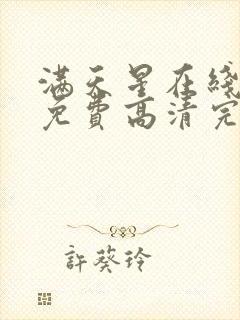 满天星在綫
免費高清完
許葵玲